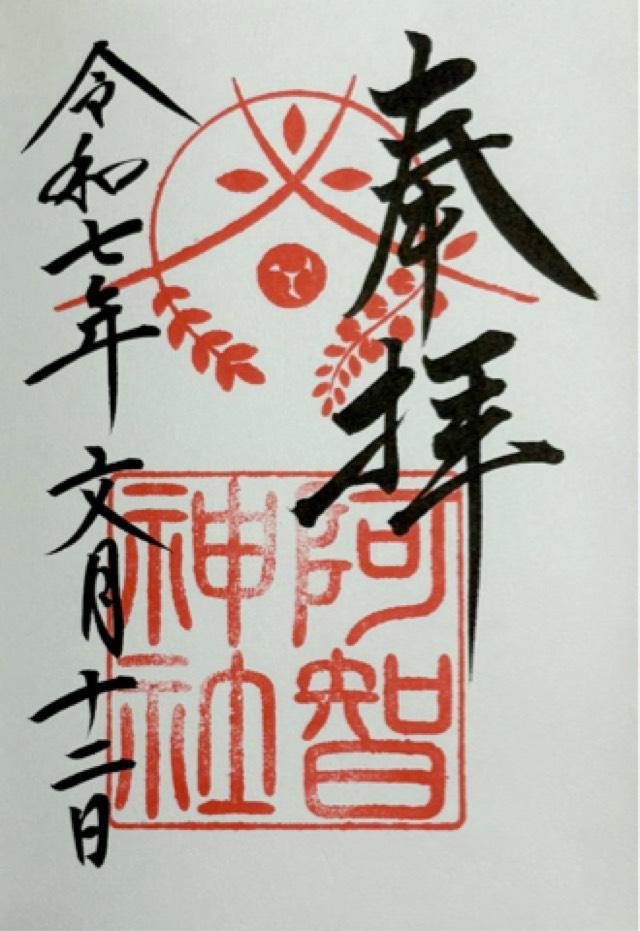 奉拝
阿智
神社
令和七年文月十二日